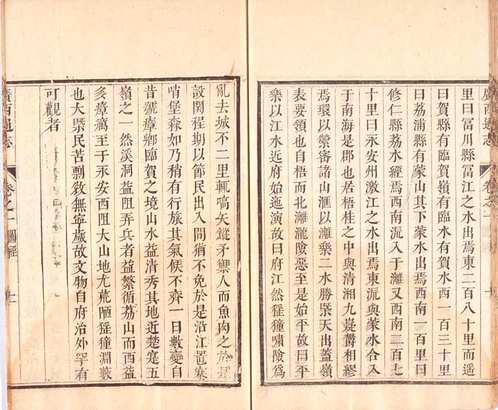 里曰富川縣富江之水出焉東二百八十里而遥
曰賀縣有臨賀嶺有臨水有賀水西一百三十里
曰荔浦縣有蒙山其下蒙水出焉西南一百里曰
修仁縣荔水經焉西南流入于灕又西南二百七
十里曰永安州激江之水出焉東流與蒙水合入
于南海是郡也若梧桂之中與清湘九嶷欝相
焉環以縈諸山滙以灕樂二水勝槩天出葢嶺
表要領也自梧而北灘瀧險惡至是始平故曰平
樂以江水近府始迤演故曰府江然猺獞嘯險爲
亂去城不二里輒嗃矢篁矛禦人而魚肉之故雖
設關程期以節民出入閒猶不免於是沿江置寨
哨堡森如乃稍有行旅其氣候不齊一日數變自
昔號瘴鄉臨賀之境山水益清秀其地近楚寔五
嶺之一然溪洞益阻弄兵者益繁循荔山而西益
多瘴癘至于永安西阻大山地尤荒陋猺獞淵藪
也大槩民苦剽敚無寧歲故文物自府治外罕有
可觀者
廣西通志 卷之一 圖經 十一